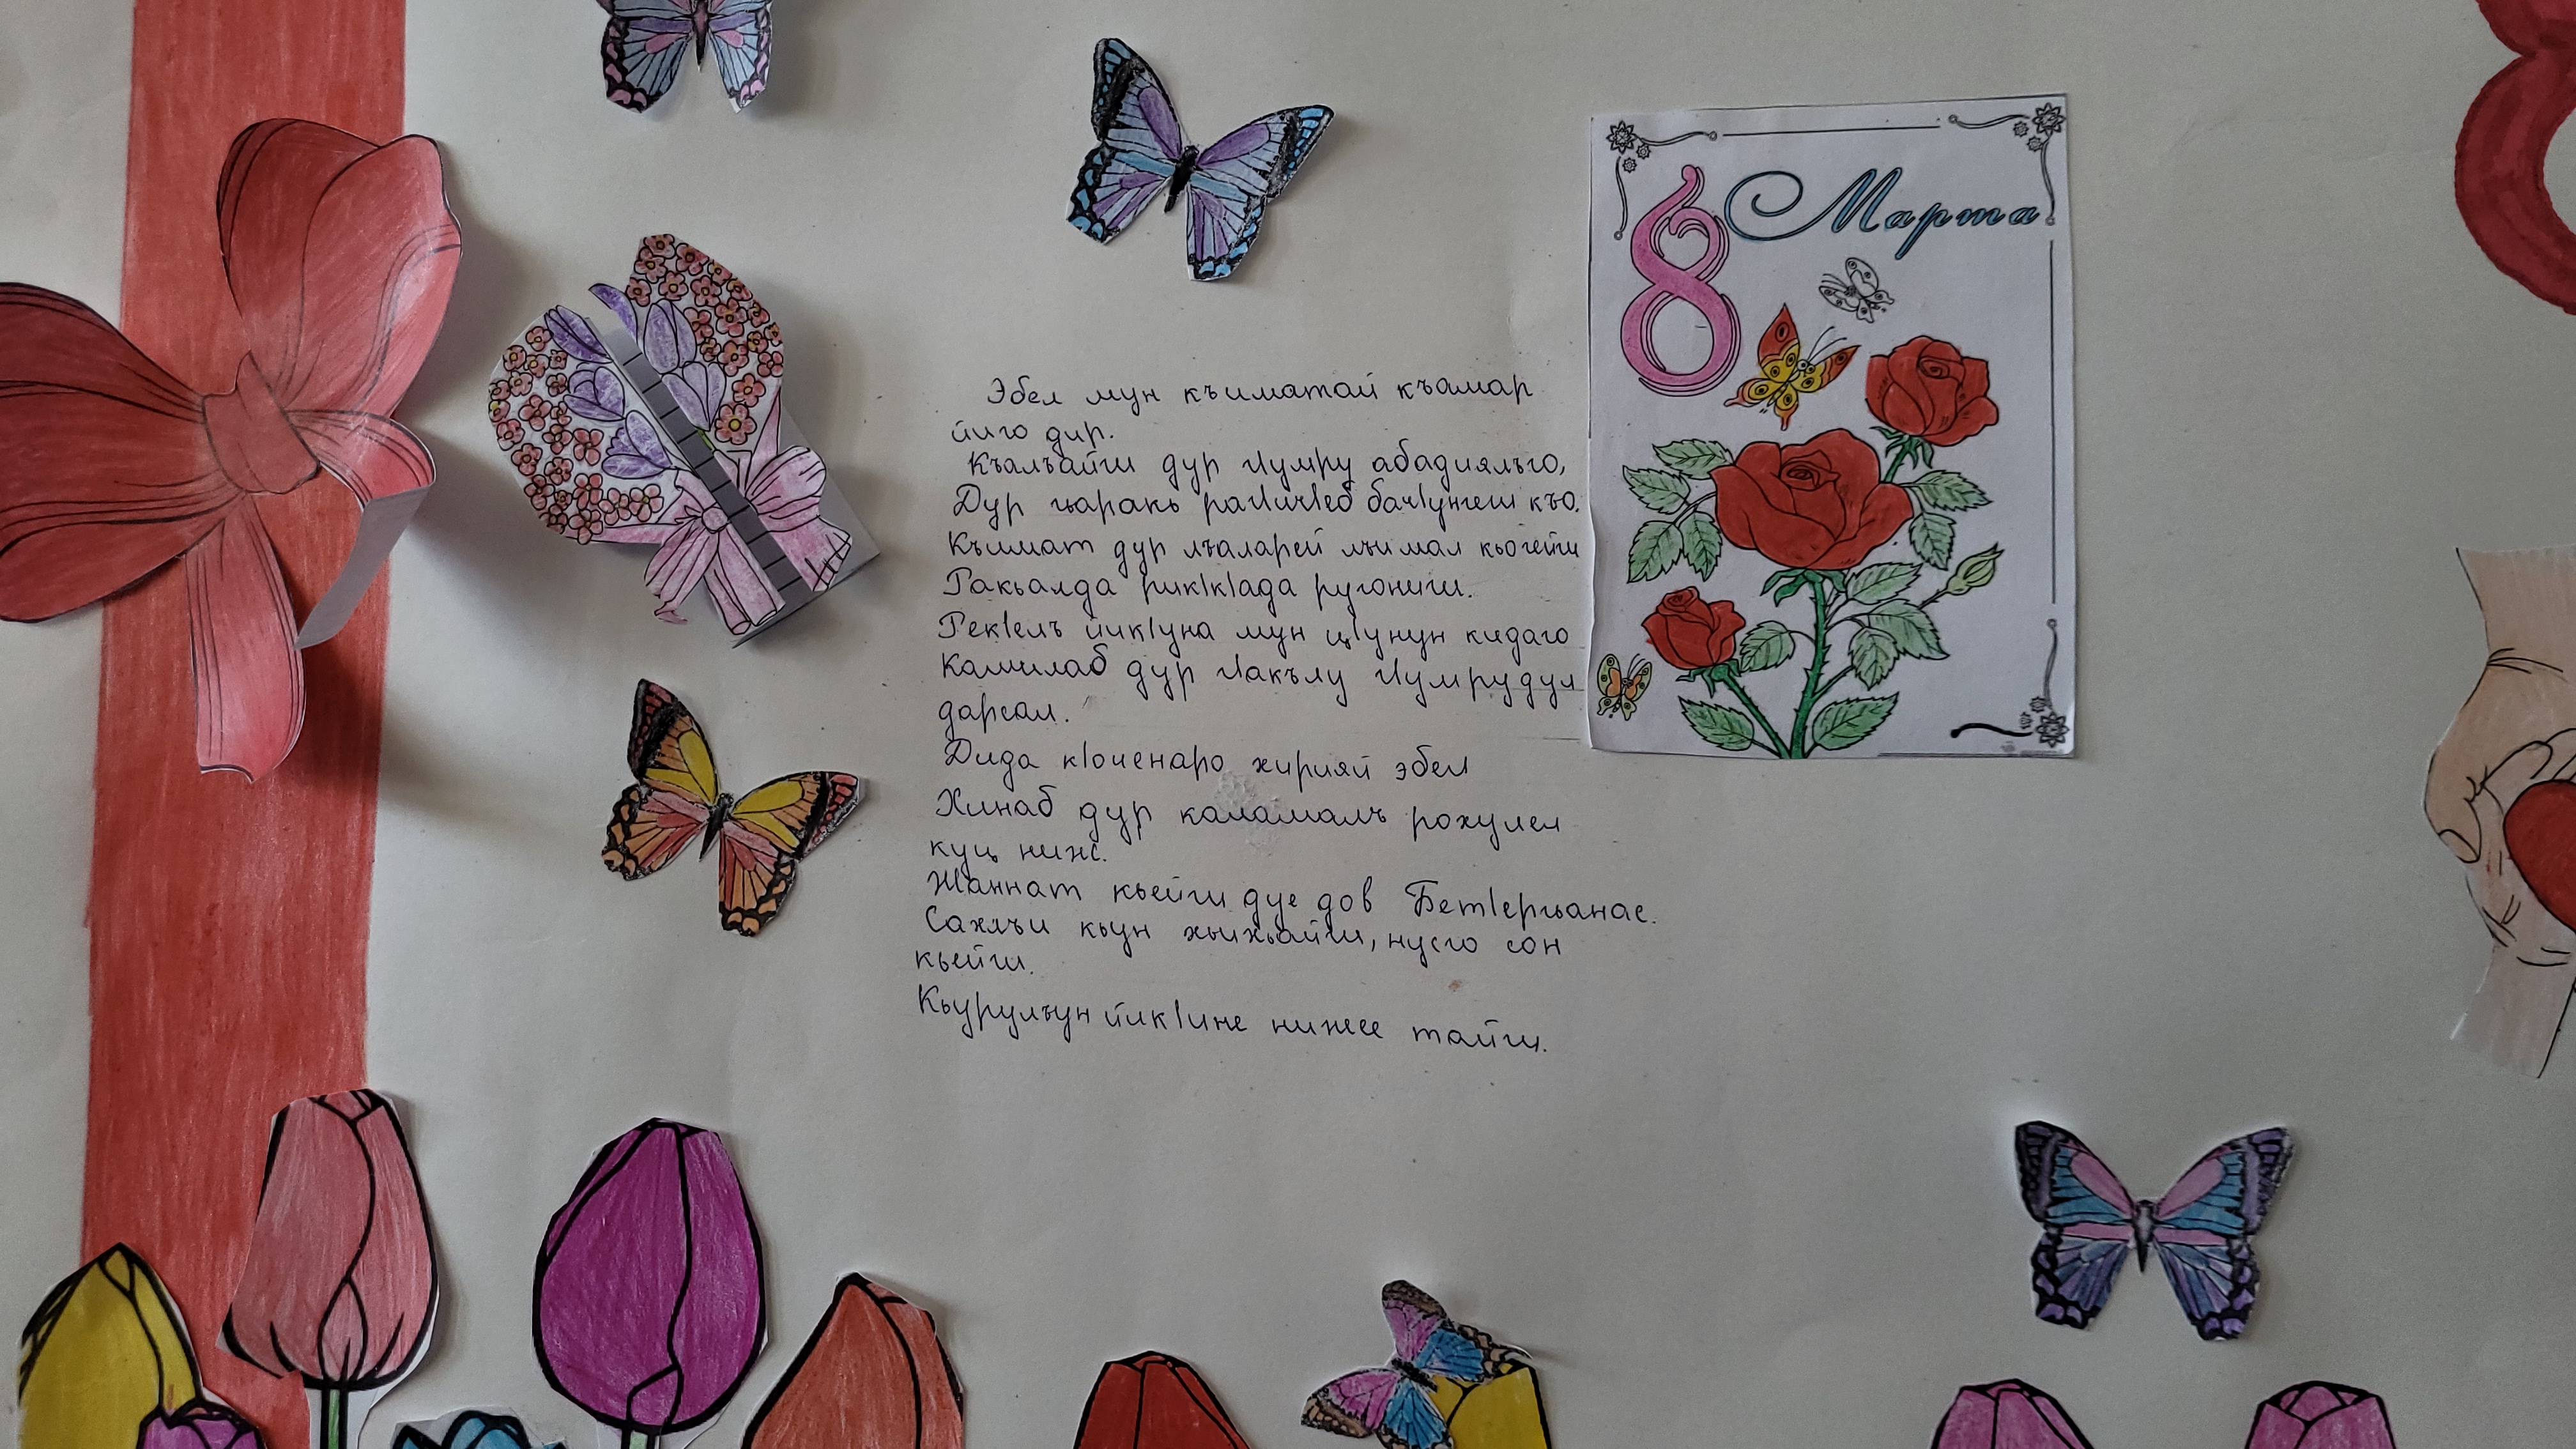 8 Марта
Эбел мун къиматай къамар
йиго дир.
Къалъайги дур гӀумру абадиялъго,
Дур гьаракь рагӀичӀеб бачӀунгеги къо.
Къимат дур лъаларей лъимал кьогейги
Ракьалда рикӀкӀада ругониги.
РекӀелъ йикӀуна мун цӀунун кидаго
Камилаб дур гӀакълу гӀумрудул
дарсал.
Дида кӀоченаро хирияй эбел
Хинаб дур каламалъ рохулел
куц ниж.
Жаннат кьейги дуе дов БетӀергьанас.
Сахлъи кьун хьихьайги, нусго сон
кьейги.
Кьурулъун йикӀине нижее тайги.